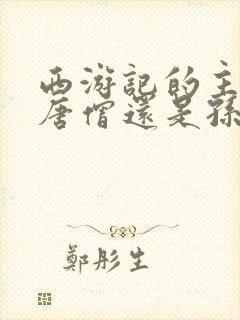 西游記的主
唐僧還是孫
鄭彤生